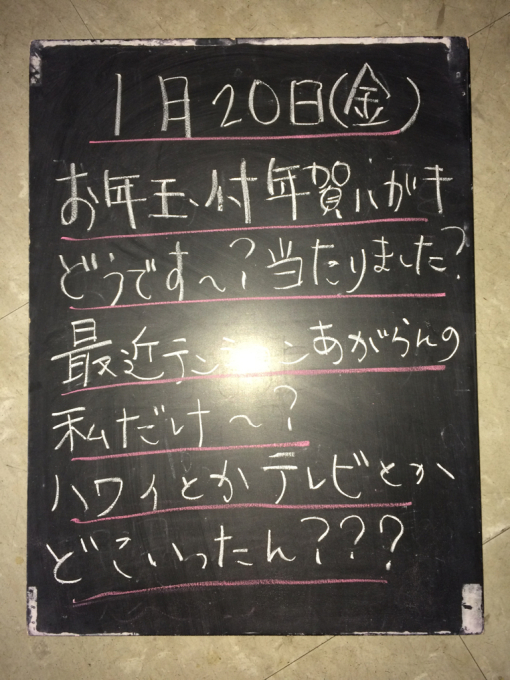 1月20日(金)
お年玉付年賀ハガキ
どうです～?当たりました?
最近テンションあがらんの
私だけ～?
ハワイとかテレビとか
どこいったん???